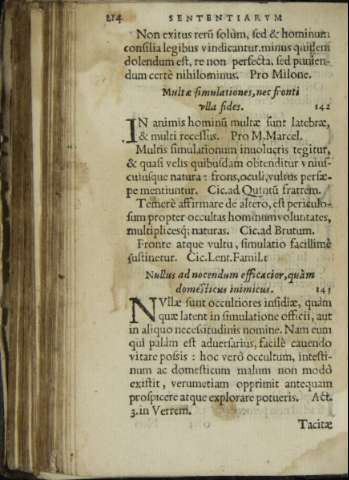 214 SENTENTIARVM
Non exitus rerū solùm, sed & hominum
consilia legibus vindicantur. minus quidem
dolendum est, re non perfecta, sed punien-
dum certè nihilominus. Pro Milone.
Multæ simulationes, nec fronti
vlla fides. 142
IN animis hominũ multæ sunt latebræ,
& multi recessus. Pro M. Marcel.
Multis simulationum inuolucris tegitur,
& quasi velis quibusdam obtenditur vnius-
cuiusque natura: frons, oculi, vultus persæ-
pe mentiuntur. Cic. ad Quintũ fratrem.
Temerè affirmare de altero, est periculo-
sum propter occultas hominum voluntates,
multiplicesq; naturas. Cic. ad Brutum.
Fronte atque vultu, simulatio facillimè
sustinetur. Cic. Lent. Famil. 1
Nullus ad nocendum efficacior, quàm
domesticus inimicus. 143
NVllæ sunt occultiores insidiæ, quàm
quæ latent in simulatione officii, aut
in aliquo necessitudinis nomine. Nam eum
qui palàm est aduersarius, facilè cauendo
vitare possis: hoc verò occultum, intesti-
num ac domesticum malum non modò
existit, verumetiam opprimit antequam
prospicere atque explorare potueris. Act.
3. in Verrem.
Tacitæ